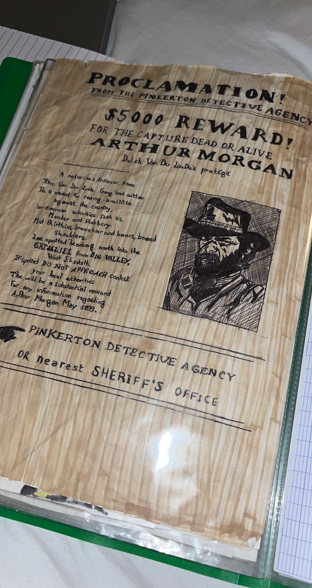 PROCLAMATION!
FROM THE PINKERTON DETECTIVE AGENCY
$5000 REWARD!
FOR THE CAPTURE DEAD OR ALIVE
ARTHUR MORGAN
Dutch Van Der Linde's protégé
A notorious follower from
The Van Der Linde Gang and outlaw
He is about 6' 1" 
against the County.
infamous activities such as
Murder and Robbery.
Mid thirties, brown hair and beard, broad
Shoulders.
Last spotted heading north into the
GRIZZLIES from BIG VALLEY,
West Elizabeth.
If spotted DO NOT APPROACH contact
your local authorities
There will be a substantial reward
for any information regarding
Arthur Morgan May 1899.
PINKERTON DETECTIVE AGENCY
OR nearest SHERIFF'S OFFICE